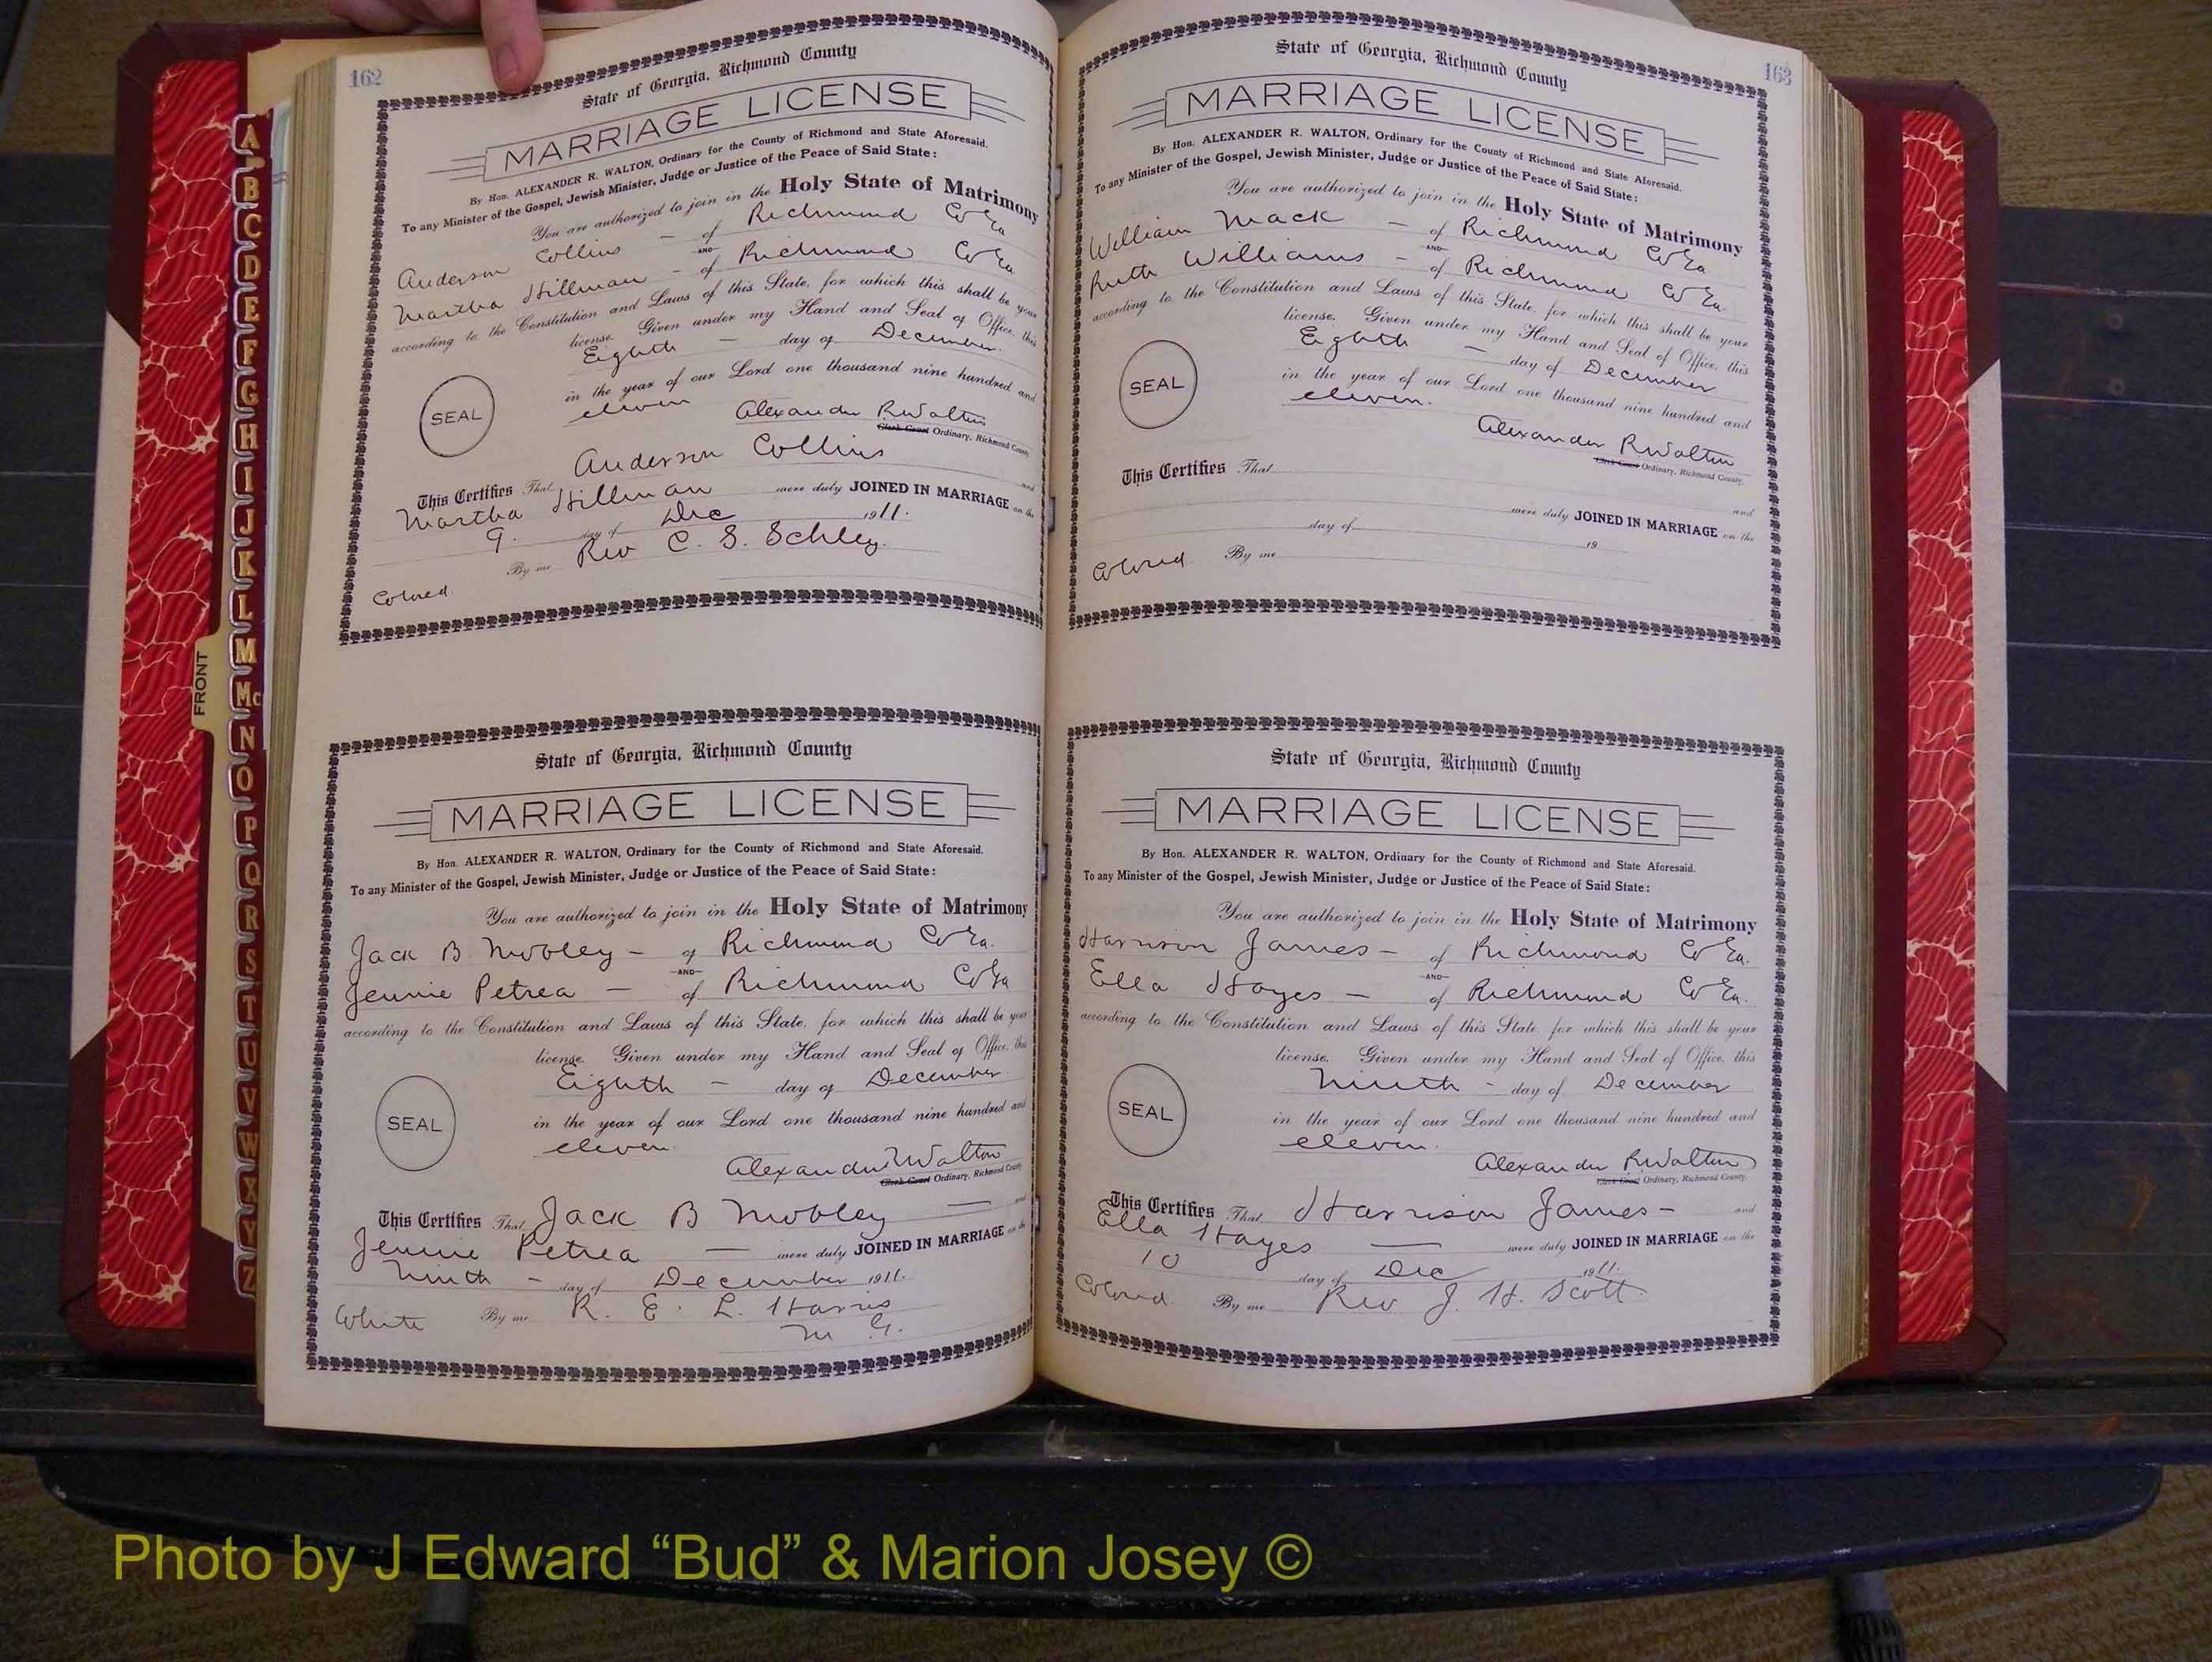 162
State of Georgia, Richmond County
MARRIAGE LICENSE
By Hon. ALEXANDER R. WALTON, Ordinary for the County of Richmond and State Aforesaid.
To any Minister of the Gospel, Jewish Minister, Judge or Justice of the Peace of Said State:
You are authorized to join in the Holy State of Matrimony
Anderson Collins - of Richmond Co Ga
AND
Martha Hillman - of Richmond Co Ga
according to the Constitution and Laws of this State, for which this shall be your
license. Given under my Hand and Seal of Office, this
Eighth - day of December.
in the year of our Lord one thousand nine hundred and
eleven
SEAL
Alexander R Walton
Clerk Court Ordinary, Richmond County.
This Certifies That Anderson Collins and
Martha Hillman were duly JOINED IN MARRIAGE on the
9. day of Dec 1911.
By me Rev C. S. Schley.
Colored.
State of Georgia, Richmond County
MARRIAGE LICENSE
By Hon. ALEXANDER R. WALTON, Ordinary for the County of Richmond and State Aforesaid.
To any Minister of the Gospel, Jewish Minister, Judge or Justice of the Peace of Said State:
You are authorized to join in the Holy State of Matrimony
Jack B Mobley - of Richmond Co Ga.
-AND-
Jennie Petrea - of Richmond Co Ga
according to the Constitution and Laws of this State, for which this shall be your
license. Given under my Hand and Seal of Office, this
Eighth - day of December
in the year of our Lord one thousand nine hundred and
eleven.
SEAL
Alexander R Walton
Clerk Court Ordinary, Richmond County
This Certifies That Jack B Mobley — and
Jennie Petrea — were duly JOINED IN MARRIAGE on the
Ninth - day of December 1911.
White By me R. E. L. Harris
M G.
163
State of Georgia, Richmond County
MARRIAGE LICENSE
By Hon. ALEXANDER R. WALTON, Ordinary for the County of Richmond and State Aforesaid.
To any Minister of the Gospel, Jewish Minister, Judge or Justice of the Peace of Said State:
You are authorized to join in the Holy State of Matrimony
William Mack - of Richmond Co Ga
-AND-
Ruth Williams - of Richmond Co Ga.
according to the Constitution and Laws of this State, for which this shall be your
license. Given under my Hand and Seal of Office, this
Eighth - day of December
in the year of our Lord one thousand nine hundred and
eleven.
SEAL
Alexander R Walton
Clerk Court Ordinary, Richmond County.
This Certifies That
and
were duly JOINED IN MARRIAGE on the
day of 19
Colored. By me
State of Georgia, Richmond County
MARRIAGE LICENSE
By Hon. ALEXANDER R. WALTON, Ordinary for the County of Richmond and State Aforesaid.
To any Minister of the Gospel, Jewish Minister, Judge or Justice of the Peace of Said State:
You are authorized to join in the Holy State of Matrimony
Harrison James - of Richmond Co Ga.
-AND-
Ella Hayes - of Richmond Co Ga.
according to the Constitution and Laws of this State, for which this shall be your
license. Given under my Hand and Seal of Office, this
Ninth - day of December
in the year of our Lord one thousand nine hundred and
eleven.
SEAL
Alexander R Walton
Clerk Court Ordinary, Richmond County.
This Certifies That Harrison James - and
Ella Hayes — were duly JOINED IN MARRIAGE on the
10 day of Dec 1911.
Colored. By me Rev J. H. Scott
FRONT
A
B
C
D
E
F
G
H
I
J
K
L
M
Mc
N
O
P
Q
R
S
T
U
V
W
X
Y
Z
Photo by J Edward “Bud” & Marion Josey ©